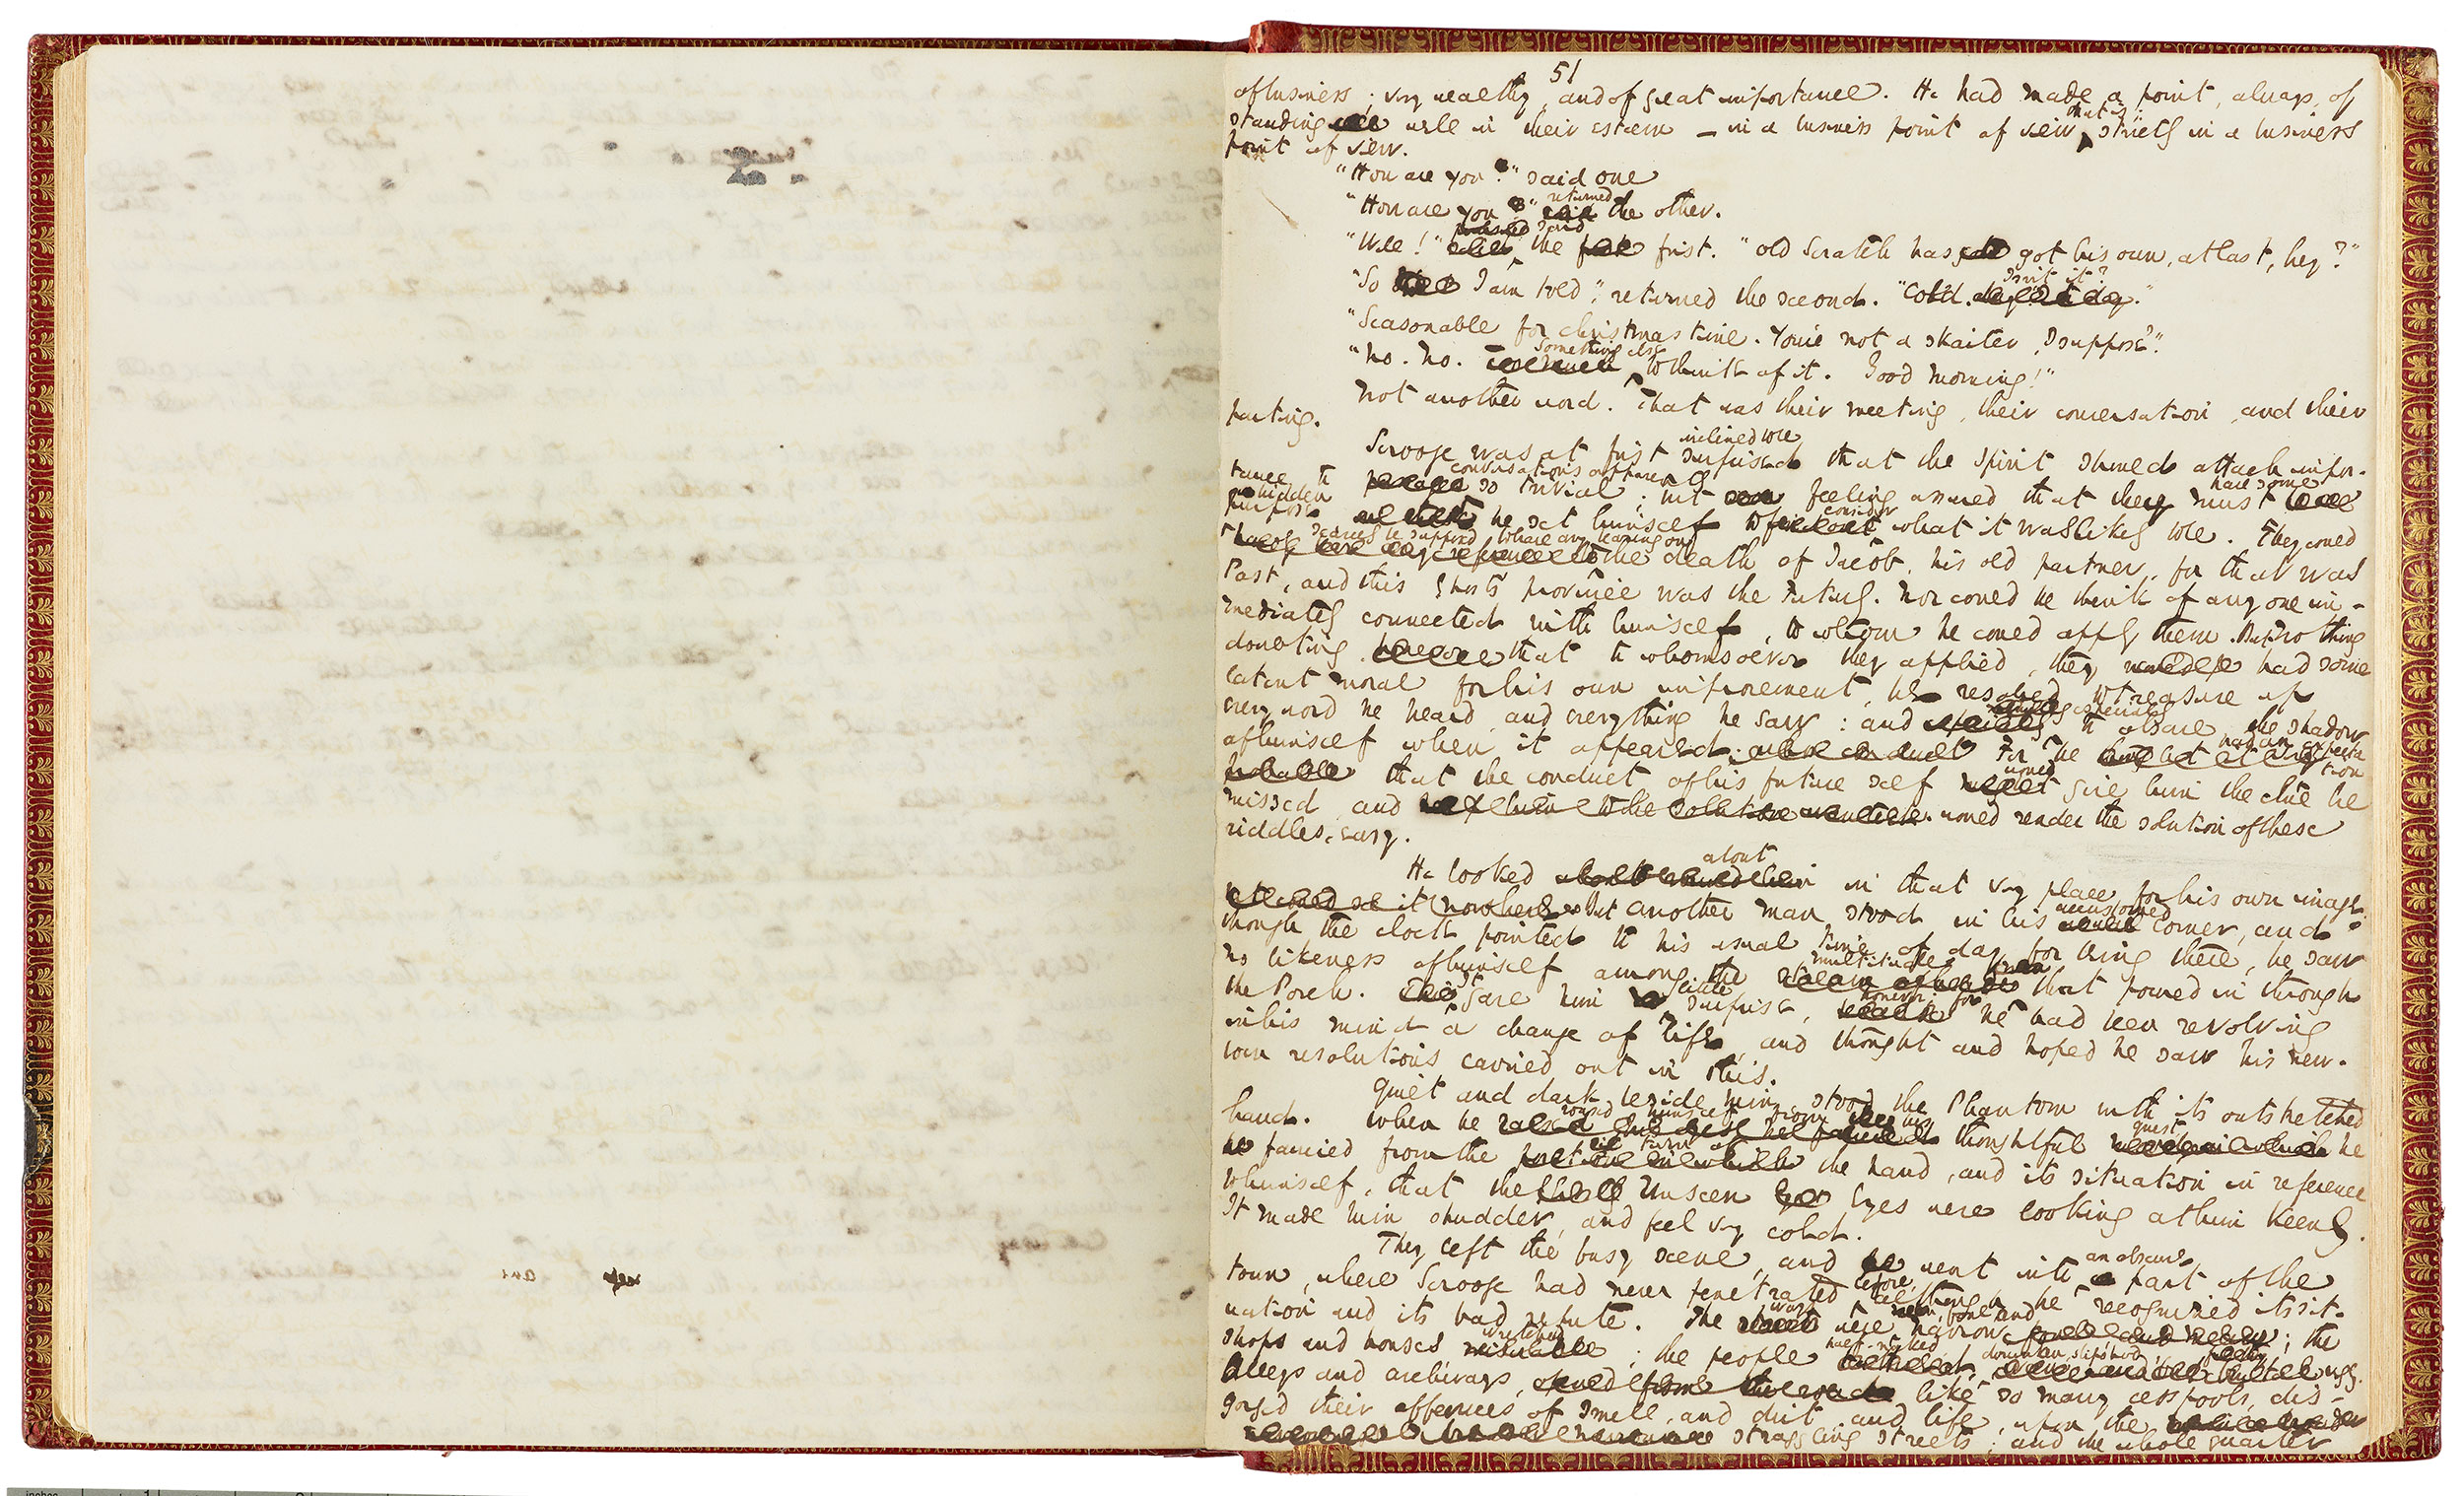 51
of business ; very wealthy, and of great importance. He had made a point, always, of
standing well in their esteem — in a business point of view, that is, strictly in a business
point of view.
"How are you?" said one
"How are you?" returned the other.
"Well!" said the first. "old Scratch has got his own, at last, hey?"
"So I am told", returned the second. "Cold. Isn't it?"
"Seasonable for Christmas time. You're not a skaiter, I suppose?".
"No. No. Something else to think of it. Good morning!"
Not another word. That was their meeting, their conversation, and their
parting.
Scrooge was at first inclined to be surprised that the Spirit should attach impor-
tance to conversations apparently so trivial; but feeling assured that they must have some
hidden purpose he set himself to consider what it was likely to be. They could
scarcely be supposed to have any bearing on the death of Jacob, his old partner, for that was
Past, and this Ghost's province was the Future. Nor could he think of any one im-
mediately connected with himself, to whom he could apply them. But nothing
doubting that to whomsoever they applied, they had some
latent moral for his own improvement, he resolved to treasure up
every word he heard, and everything he saw : and especially to observe the shadow
of himself when it appeared. For he had an expecta
tion that the conduct of his future self would give him the clue he
missed, and would render the solution of these
riddles easy.
He looked about in that very place for his own image;
but another man stood in his accustomed corner, and
though the clock pointed to his usual time of day for being there, he saw
no likeness of himself among the multitudes that poured in through
the Porch. It gave him little surprise, however; for he had been revolving
in his mind a change of life, and thought and hoped he saw his new-
born resolutions carried out in this.
Quiet and dark, beside him, stood the Phantom with its outstretched
hand. When he roused himself from his thoughtful quest he
fancied from the turn of the hand, and its situation in reference
to himself, that the Unseen Eyes were looking at him keenly.
It made him shudder, and feel very cold.
They left the busy scene, and went into an obscure part of the
town, where Scrooge had never penetrated before, although he recognized its sit-
uation and its bad repute. The ways were foul and narrow; the
shops and houses wretched; the people half-naked, drunken, slipshod, ugly.
Alleys and archways, like so many cesspools, dis-
gorged their offences of smell, and dirt, and life, upon the
straggling streets; and the whole quarter